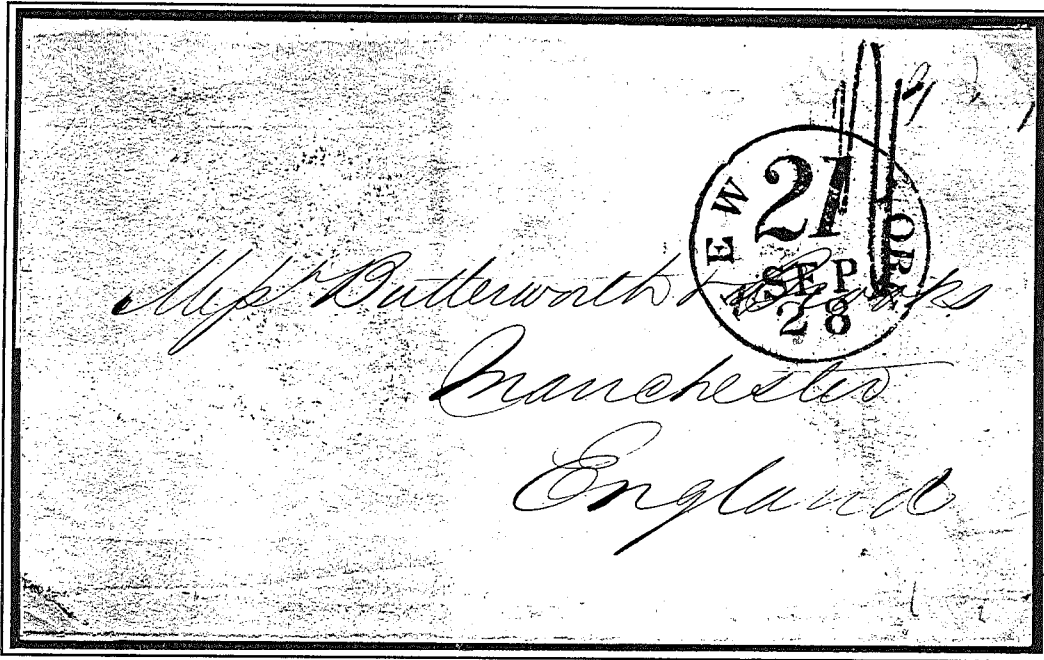 NEW YORK
21
SEP
28
Messrs Butterworth & Brooks
Manchester
England